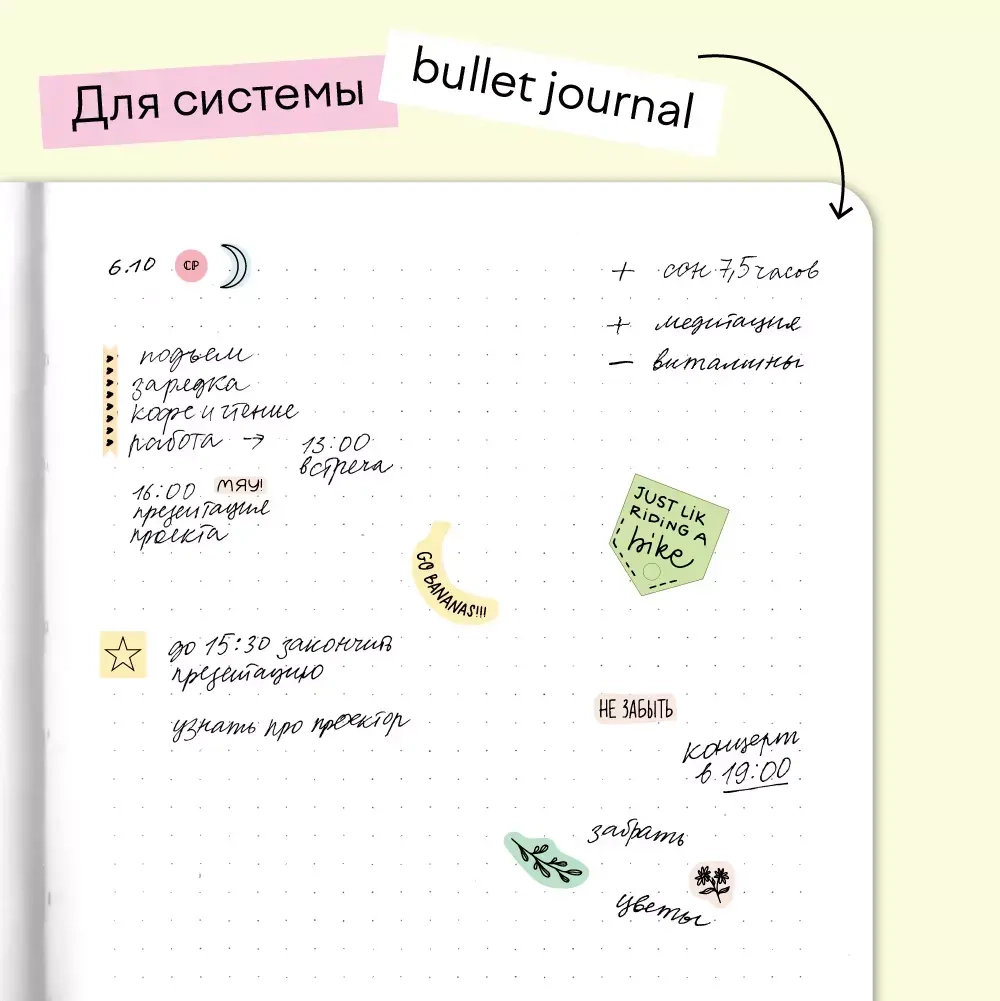 Для системы bullet journal
6.10 СР
+ сон 7,5 часов
+ медитация
— витамины
подъем
зарядка
кофе и чтение
работа → 13:00
встреча
16:00 МЯУ!
презентация
проекта
JUST LIK
RIDING A
bike
GO BANANAS!!!
до 15:30 закончить
презентацию
узнать про проектор
НЕ ЗАБЫТЬ
концерт
в 19:00
забрать
цветы